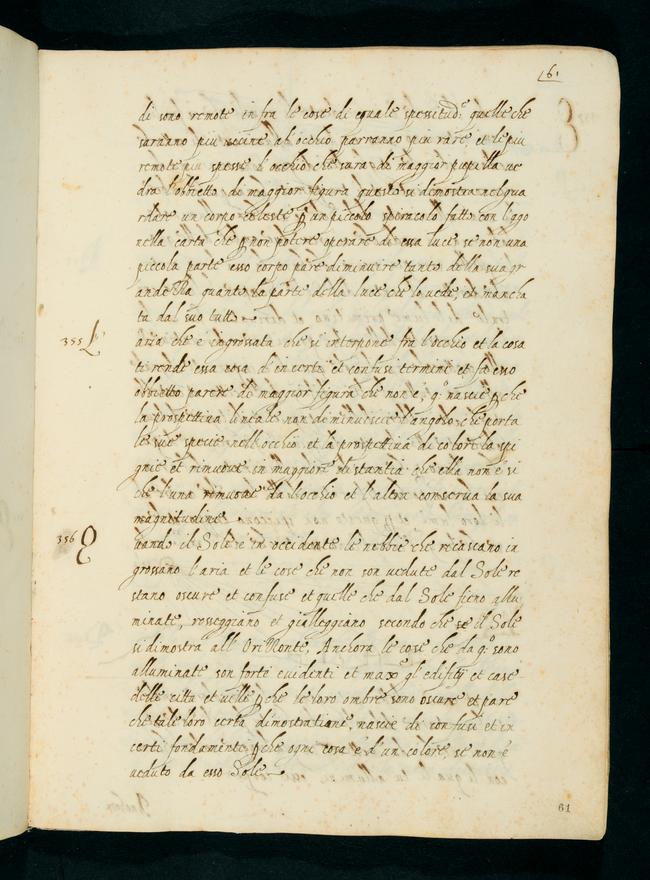 61
di sono remote in fra le cose di equale spessitud.e quelle che
saranno piu uicine al occhio parranno piu rare, et le piu
remote piu spesse l'occhio che sara di maggior pupilla ue
dra l'obbietto di maggior figura questo si dimostra nel gua
rdare un corpo celeste p un piccolo spiracolo fatto con l'ago
nella carta che p non potere operare di essa luce se non una
piccola parte esso corpo pare diminuire tanto della sua gr
andezza quanto la parte della luce che lo uede, et mancha
ta dal suo tutto
355 L
aria che è ingrossata che si interpone fra l'occhio et la cosa
ti rende essa cosa d'incerti et confusi termini et fa esso
obbietto parere di maggior figura che non e, q.o nascie p che
la prospettiua lineale non diminuiscie l'angolo che porta
le sue specie nell occhio et la prospettiua di colori la spi
gnie et rimuoue in maggiore distantia che ella non è si
che l'una rimuoue da l'occhio et l'altra conserua la sua
magnitudine
356 Q
uando il Sole è in occidente le nebbie che ricascano in
grossano l'aria et le cose che non son uedute dal Sole re
stano oscure et confuse et quelle che dal Sole fieno allu
minate, rosseggiano et gialleggiano secondo che se il Sole
si dimostra all' Orizzonte. Anchora le cose che da q.o sono
alluminate son forte euidenti et max.e gl' edifitij et case
delle citta et uille p che le loro ombre sono oscure et pare
che tale loro certa dimostratione, nascie di confusi et in
certi fondamenti p che ogni cosa è d'un colore, se non è
ueduto da esso Sole
61